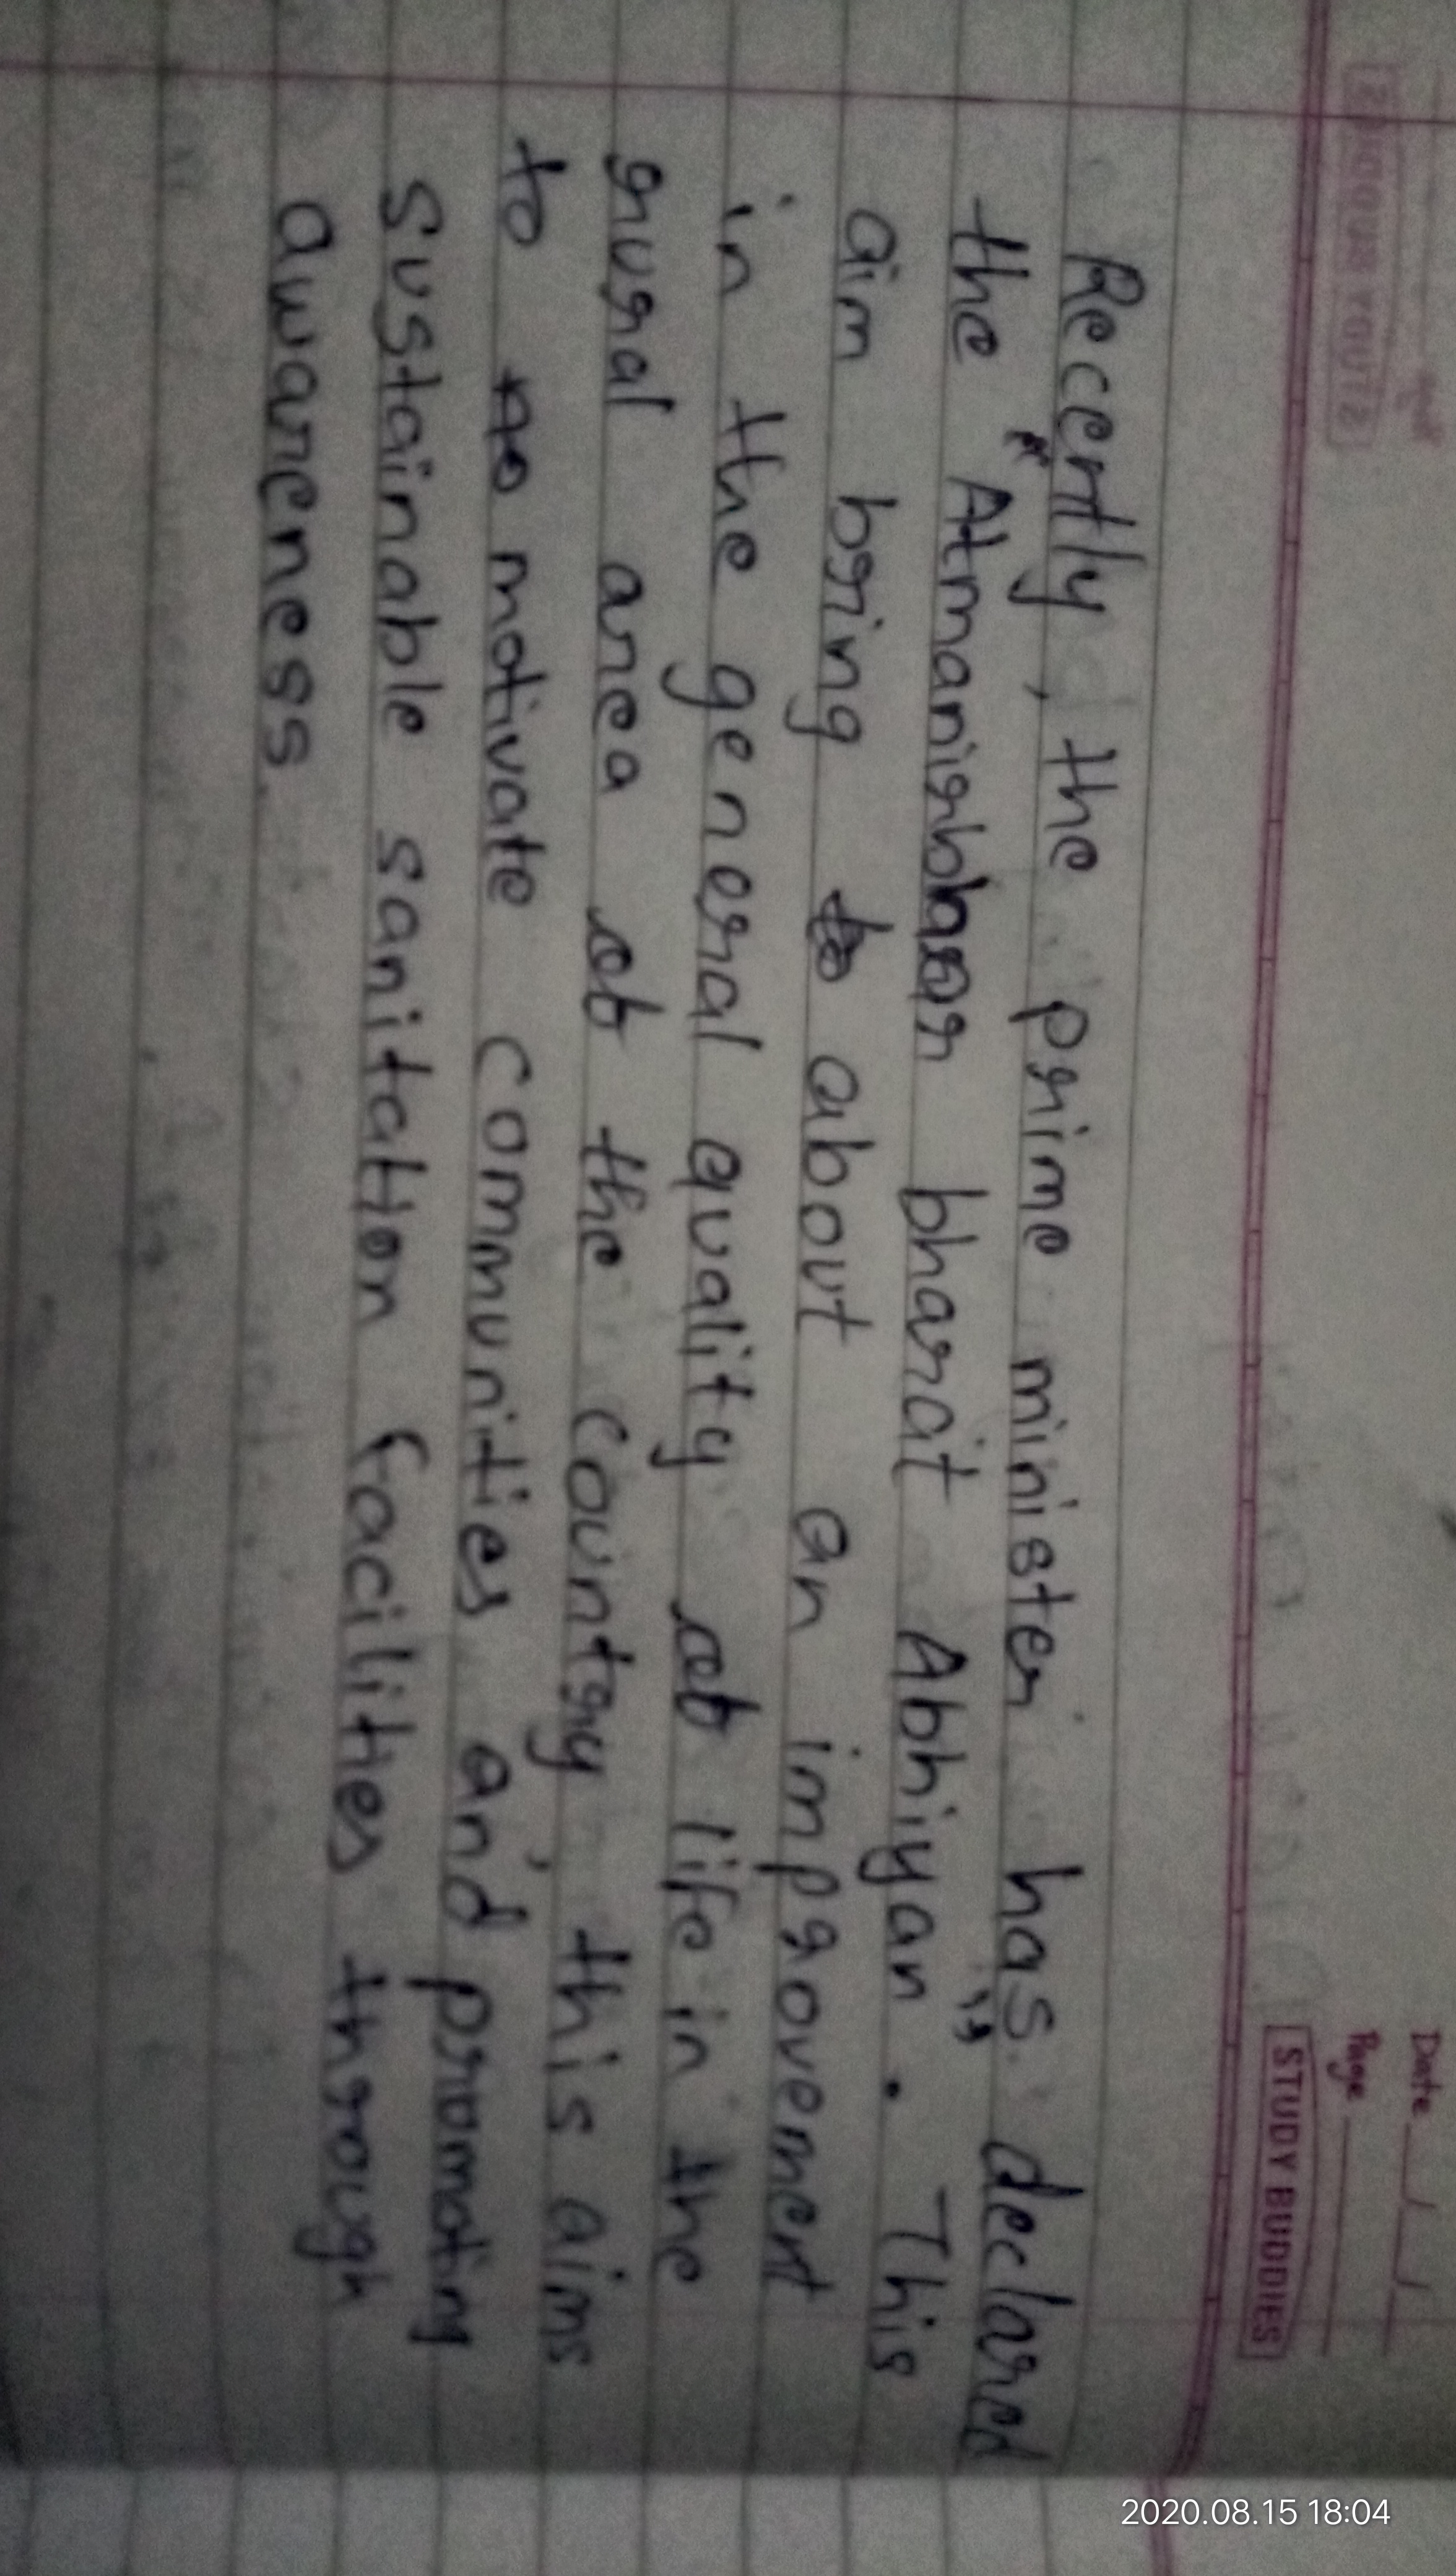 Date
Page
STUDY BUDDIES
Recently, the prime minister has declared
the "Atmanirbhar bharat Abhiyan". This
aim bring to about an improvement
in the general quality of life in the
rural area of the country this aims
to to motivate communities and promoting
sustainable sanitation facilities through
awareness
2020.08.15 18:04